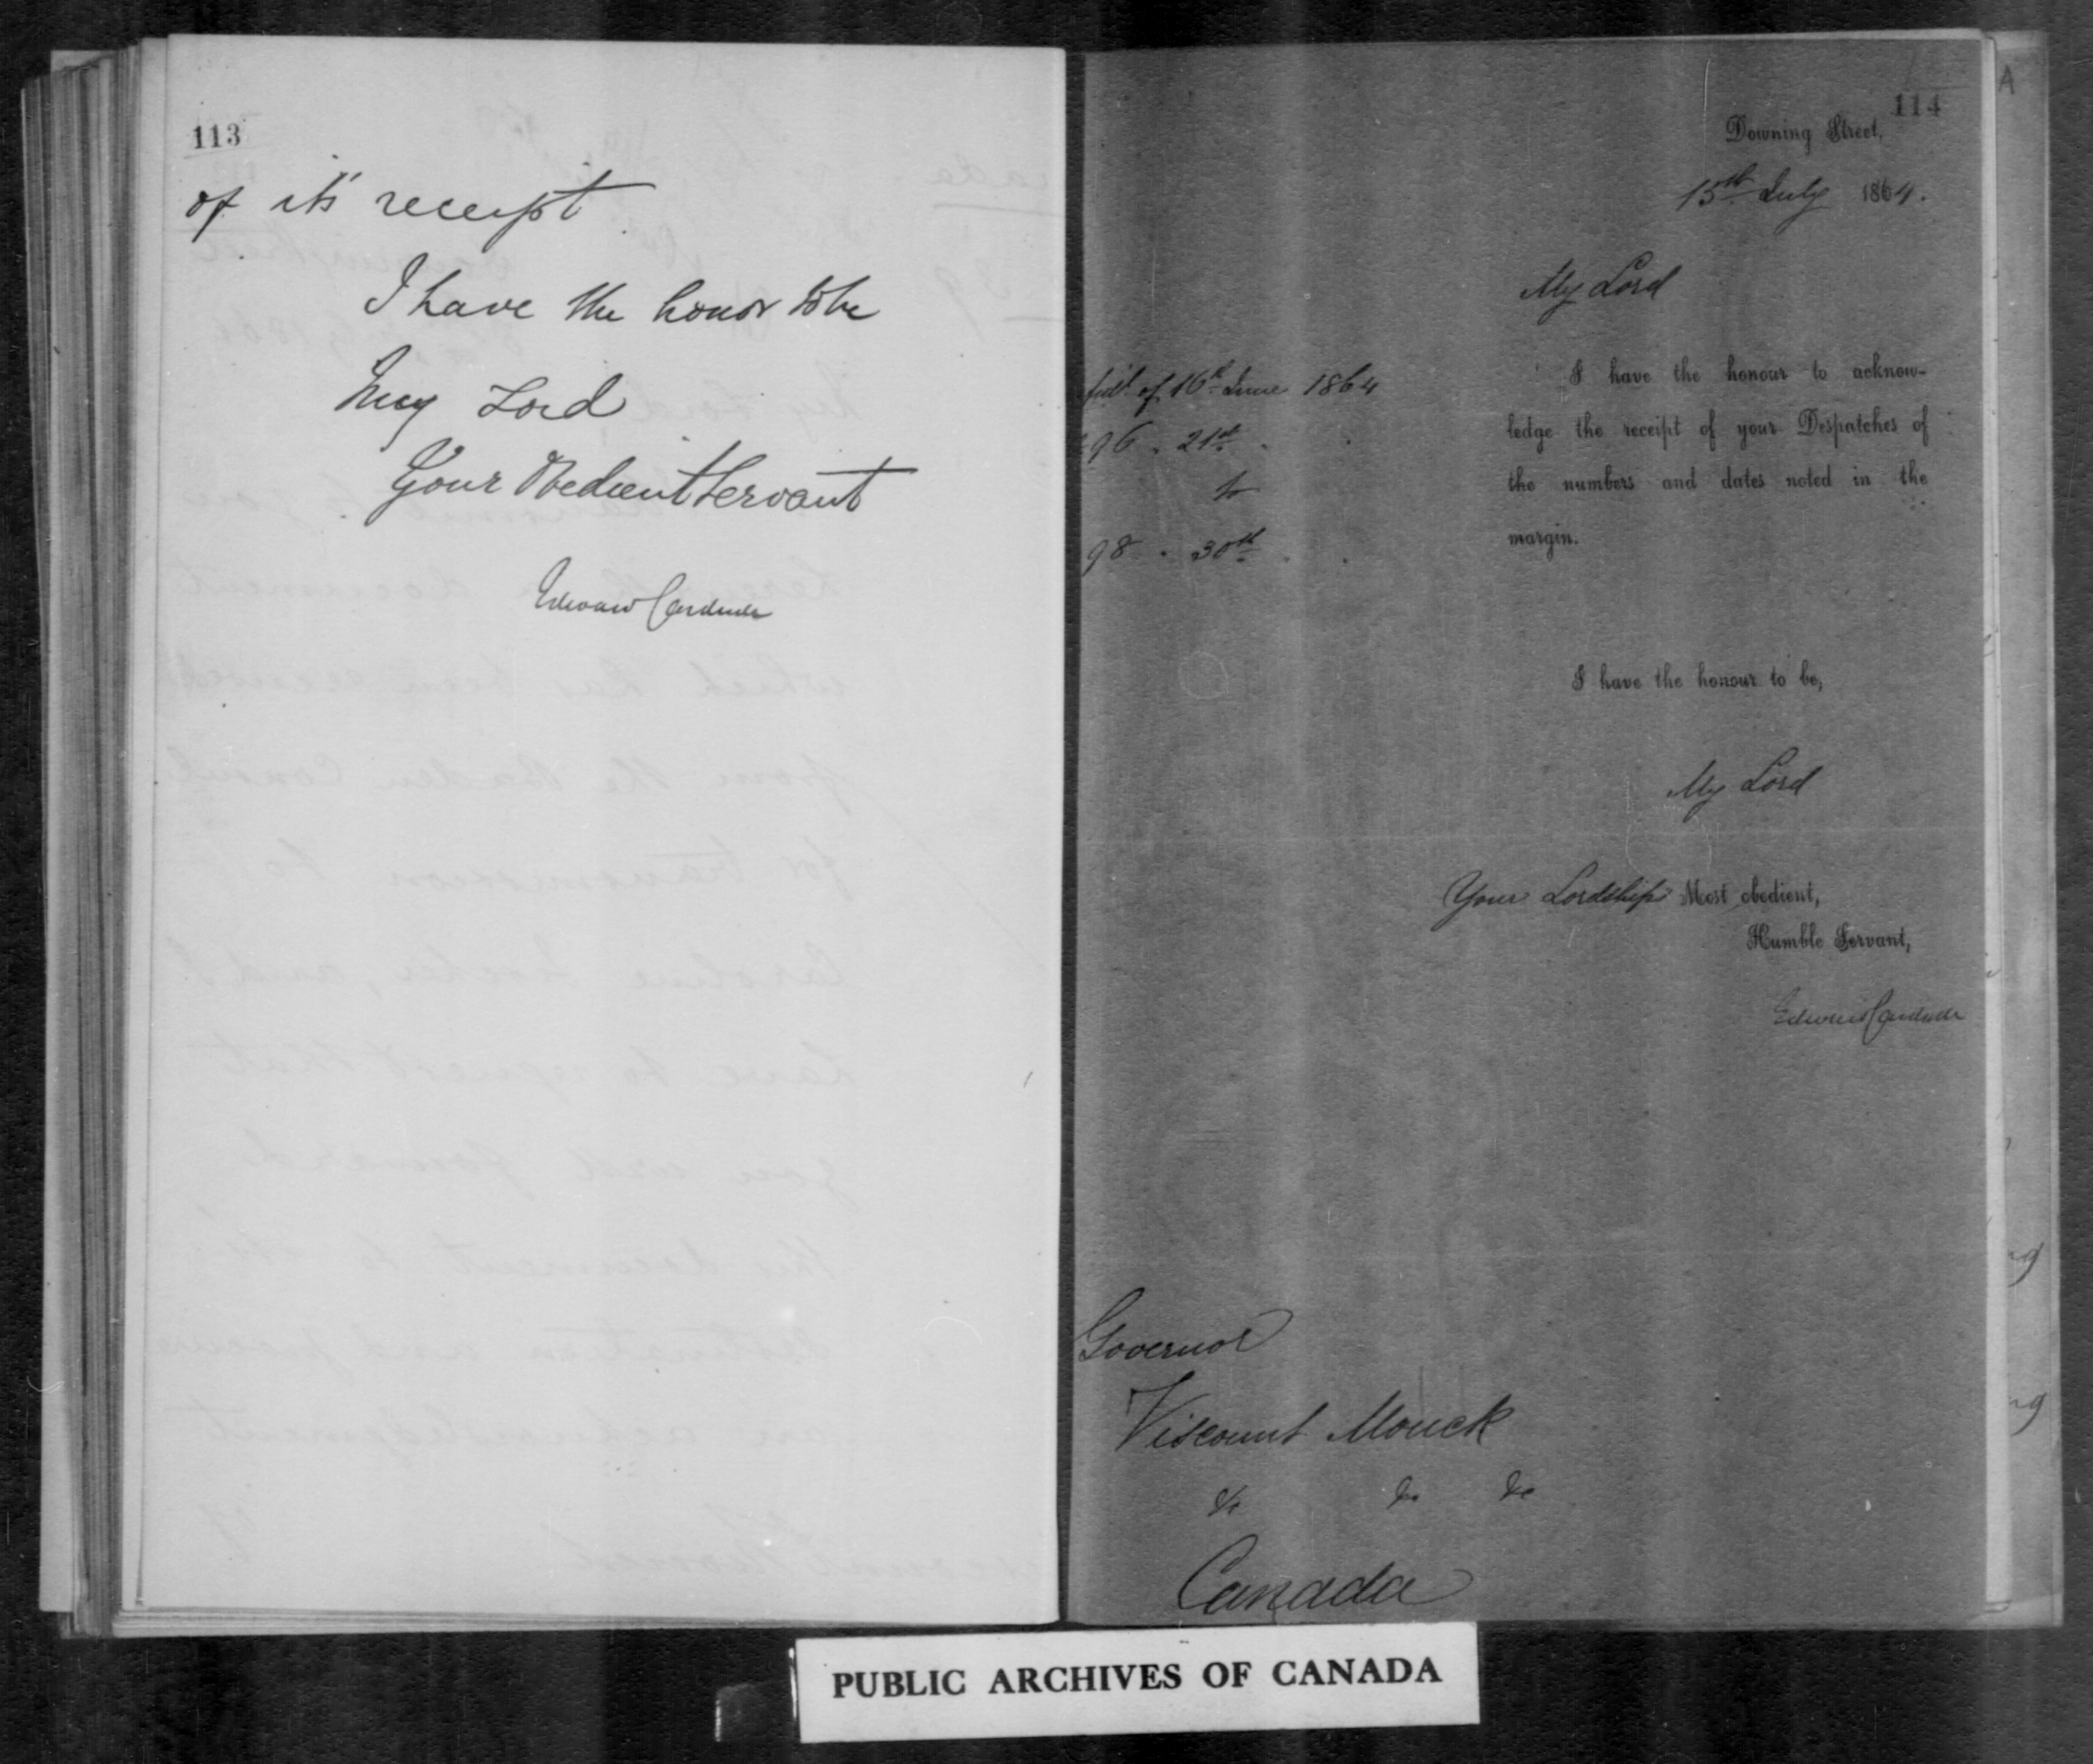 113
of it's receipt
I have the honor to be
My Lord
Your Obedient Servant
Edward Cardwell
114
Downing Street,
15th July 1864.
My Lord
I have the honour to acknow-
ledge the receipt of your Despatches of
the numbers and dates noted in the
margin.
of 16th June 1864
96 . 21st
to
98 . 30th
I have the honour to be,
My Lord
Your Lordship's Most obedient,
Humble Servant,
Edward Cardwell
Governor
Viscount Monck
&c &c &c
Canada
PUBLIC ARCHIVES OF CANADA